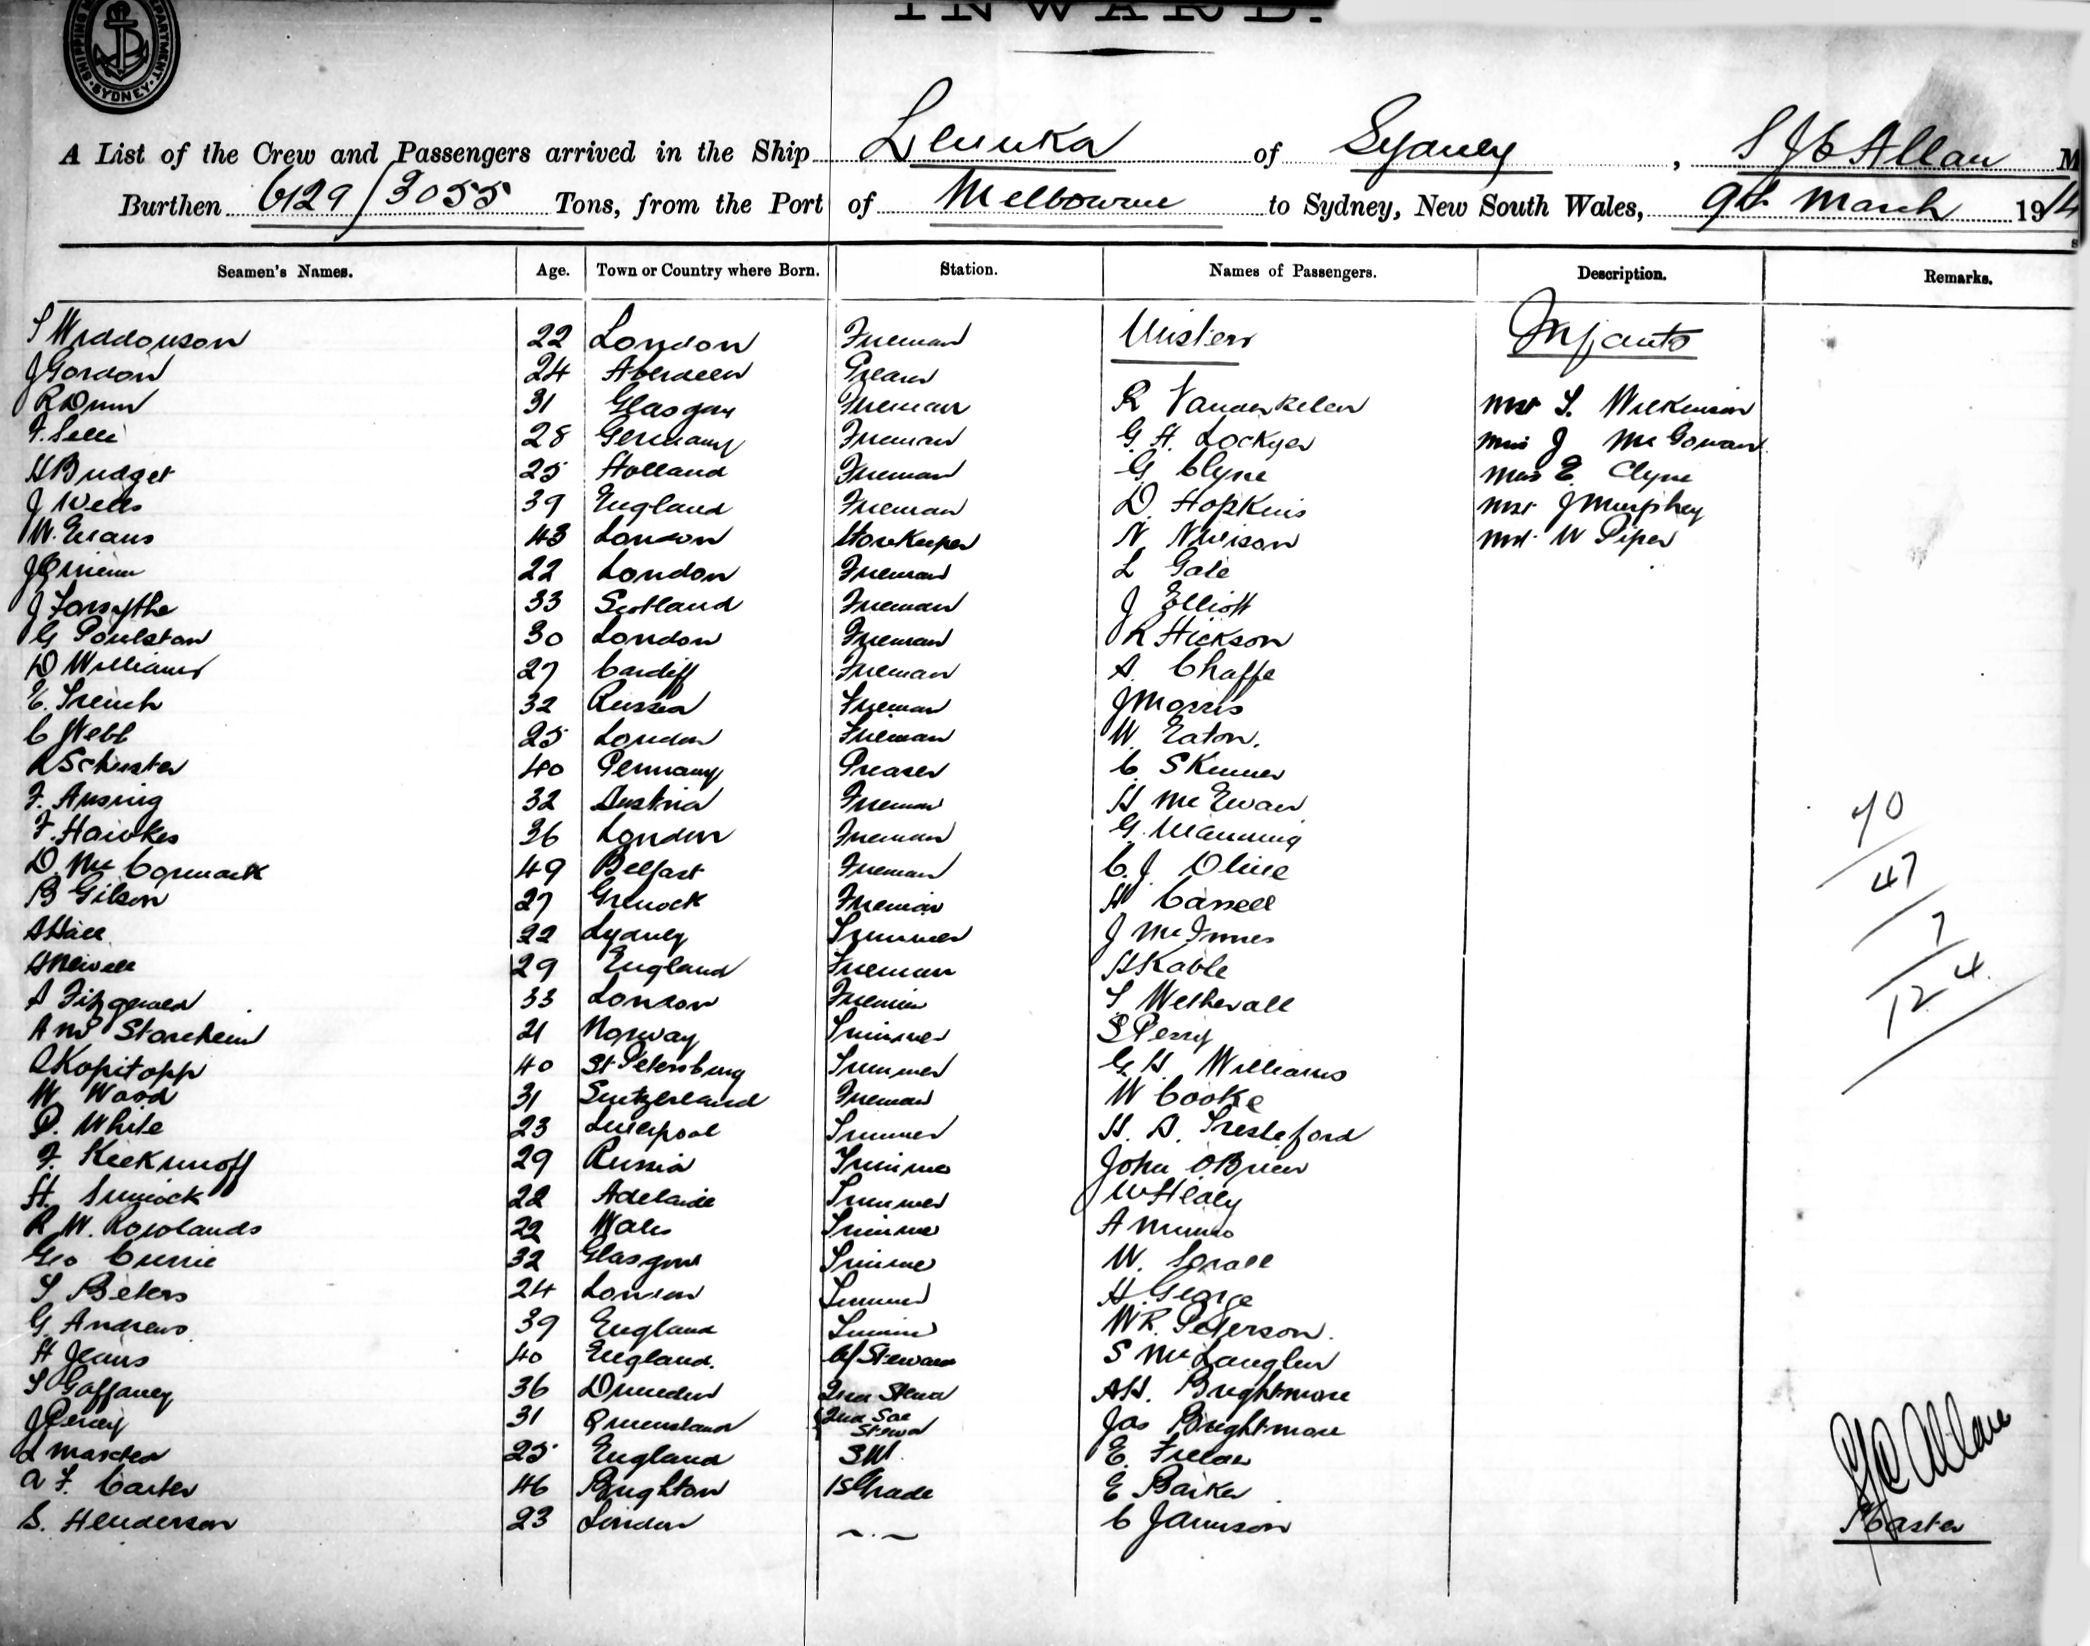 SHIPPING DEPARTMENT SYDNEY
INWARD.
A List of the Crew and Passengers arrived in the Ship Levuka of Sydney, S J E Allan M
Burthen 6129/3055 Tons, from the Port of Melbourne to Sydney, New South Wales, 9th March 1914
Seamen's Names. Age. Town or Country where Born. Station. Names of Passengers. Description. Remarks.
S Widdowson 22 London Fireman Misters Infants
J Gordon 24 Aberdeen Greaser
R Dunn 31 Glasgow Fireman R Vanderkelen Mstr S. Wilkinson
F. Selle 28 Germany Fireman G. H. Lockyer Miss J McGowan
H Budget 25 Holland Fireman G Clyne Miss E. Clyne
J Wells 39 England Fireman D. Hopkins Mstr J Murphey
W. Evans 43 London Storekeeper N W Piper
J 22 London Fireman L Gale
J Forsythe 33 Scotland Fireman J Elliott
G Poulston 30 London Fireman R Hickson
D Williams 27 Cardiff Fireman A. Chaffe
E. French 32 Russia Fireman J Morris
C Webb 25 London Fireman W. Eaton.
R Schuster 40 Germany Greaser C. Skinner
F. Ansing 32 Austria Fireman H McEwan
F. Hawkes 36 London Fireman G. Manning
D. McCormack 49 Belfast Fireman C. J. Olive
B Gilson 27 Grenock Fireman H Cassell
A Hall 22 Sydney Trimmer J McInnes
A Newell 29 England Fireman H Kable
A Fitzgerald 33 London Fireman S Wetherall
A M Storeheim 21 Norway Trimmer S Perry
A Kopitopp 40 St Petersburg Trimmer G H Williams
W Wood 31 Switzerland Fireman W Cooke
P. White 23 Liverpool Trimmer H. A. Tresleford
F. Kiekunoff 29 Russia Trimmer John O'Brien
H. Simcock 22 Adelaide Trimmer W Healy
R W. Rowlands 22 Wales Trimmer A Munro
Geo Currie 32 Glasgow Trimmer W.
S Peters 24 London Trimmer H. George
G. Andrews 39 England Trimmer W R. Peterson.
H Jeans 40 England. Cf Steward S McLauglin
S Gaffaney 36 Dunedin 2nd Steward A H. Brightmore
J Percy 31 Queensland 2nd Sal Steward Jas Brightmore
L Marsden 25 England S W. E.
A F. Carter 46 Brighton 1s Grade E Barker
S. Henderson 23 London ~.~ C Jamison
70
47
7
124
S J E Allan
Master